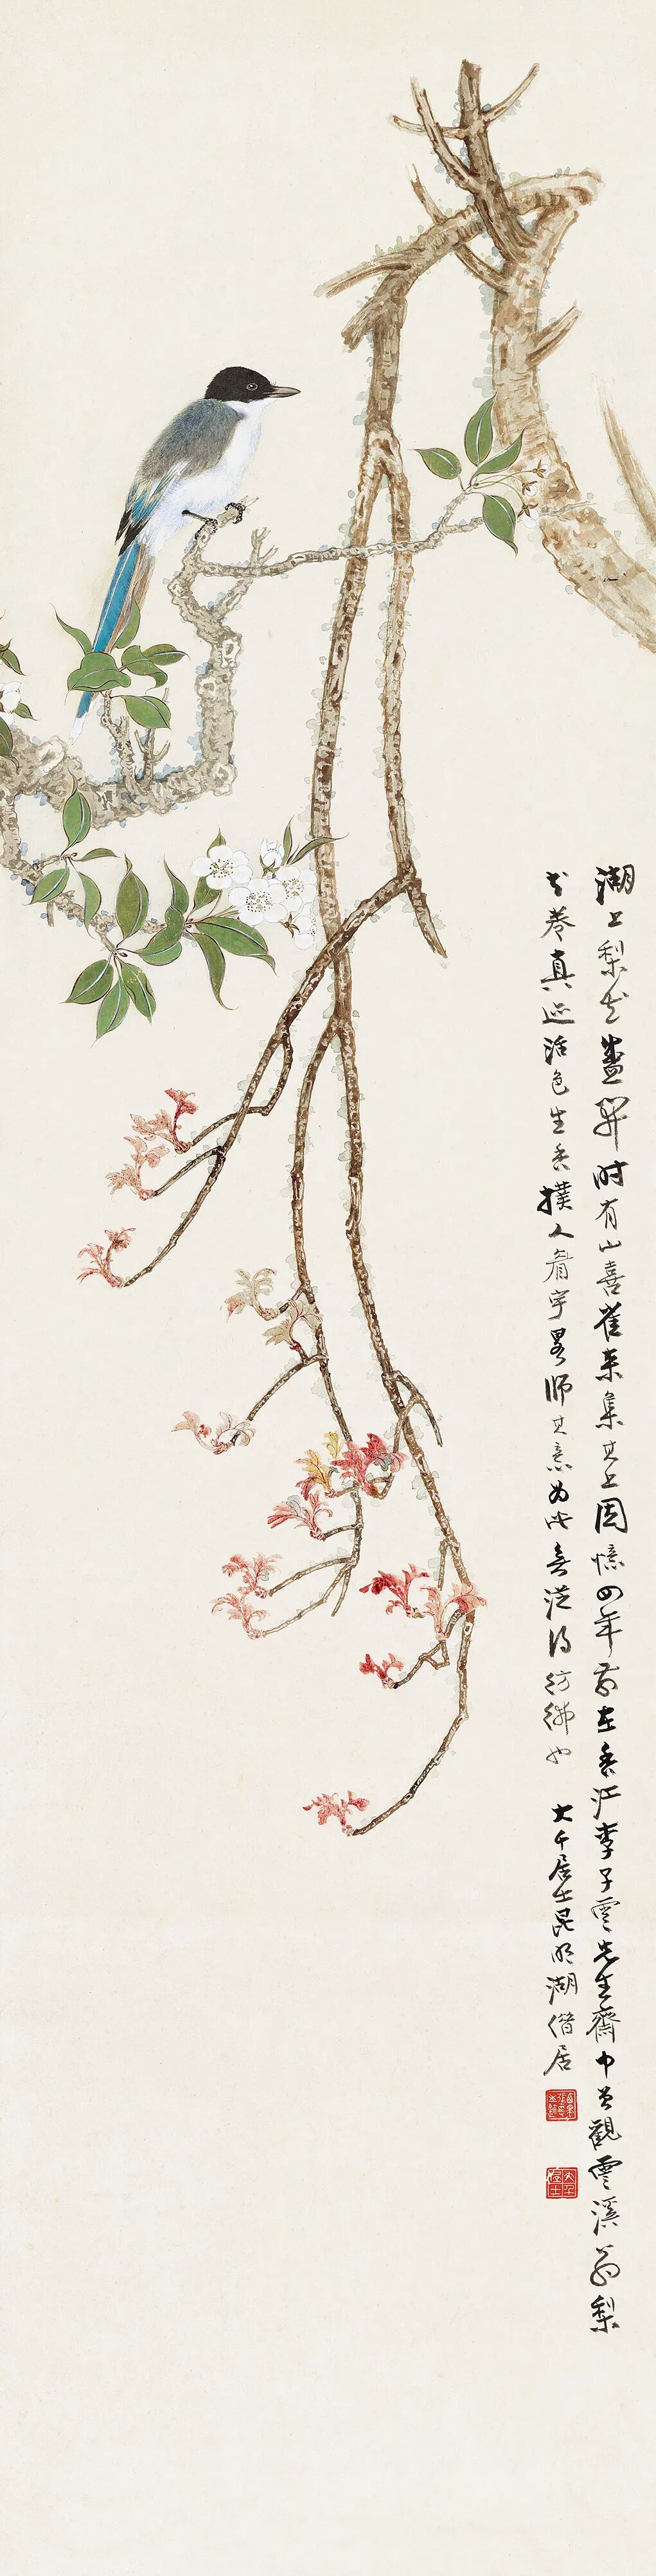 湖上梨花盛開時有山喜雀來集其上因憶四年前在香江李子雲先生齋中曾觀雲溪翁梨
花卷真迹活色生香撲人眉宇畧師其意為此無從得彷彿也 大千居士昆明湖借居
大千居士